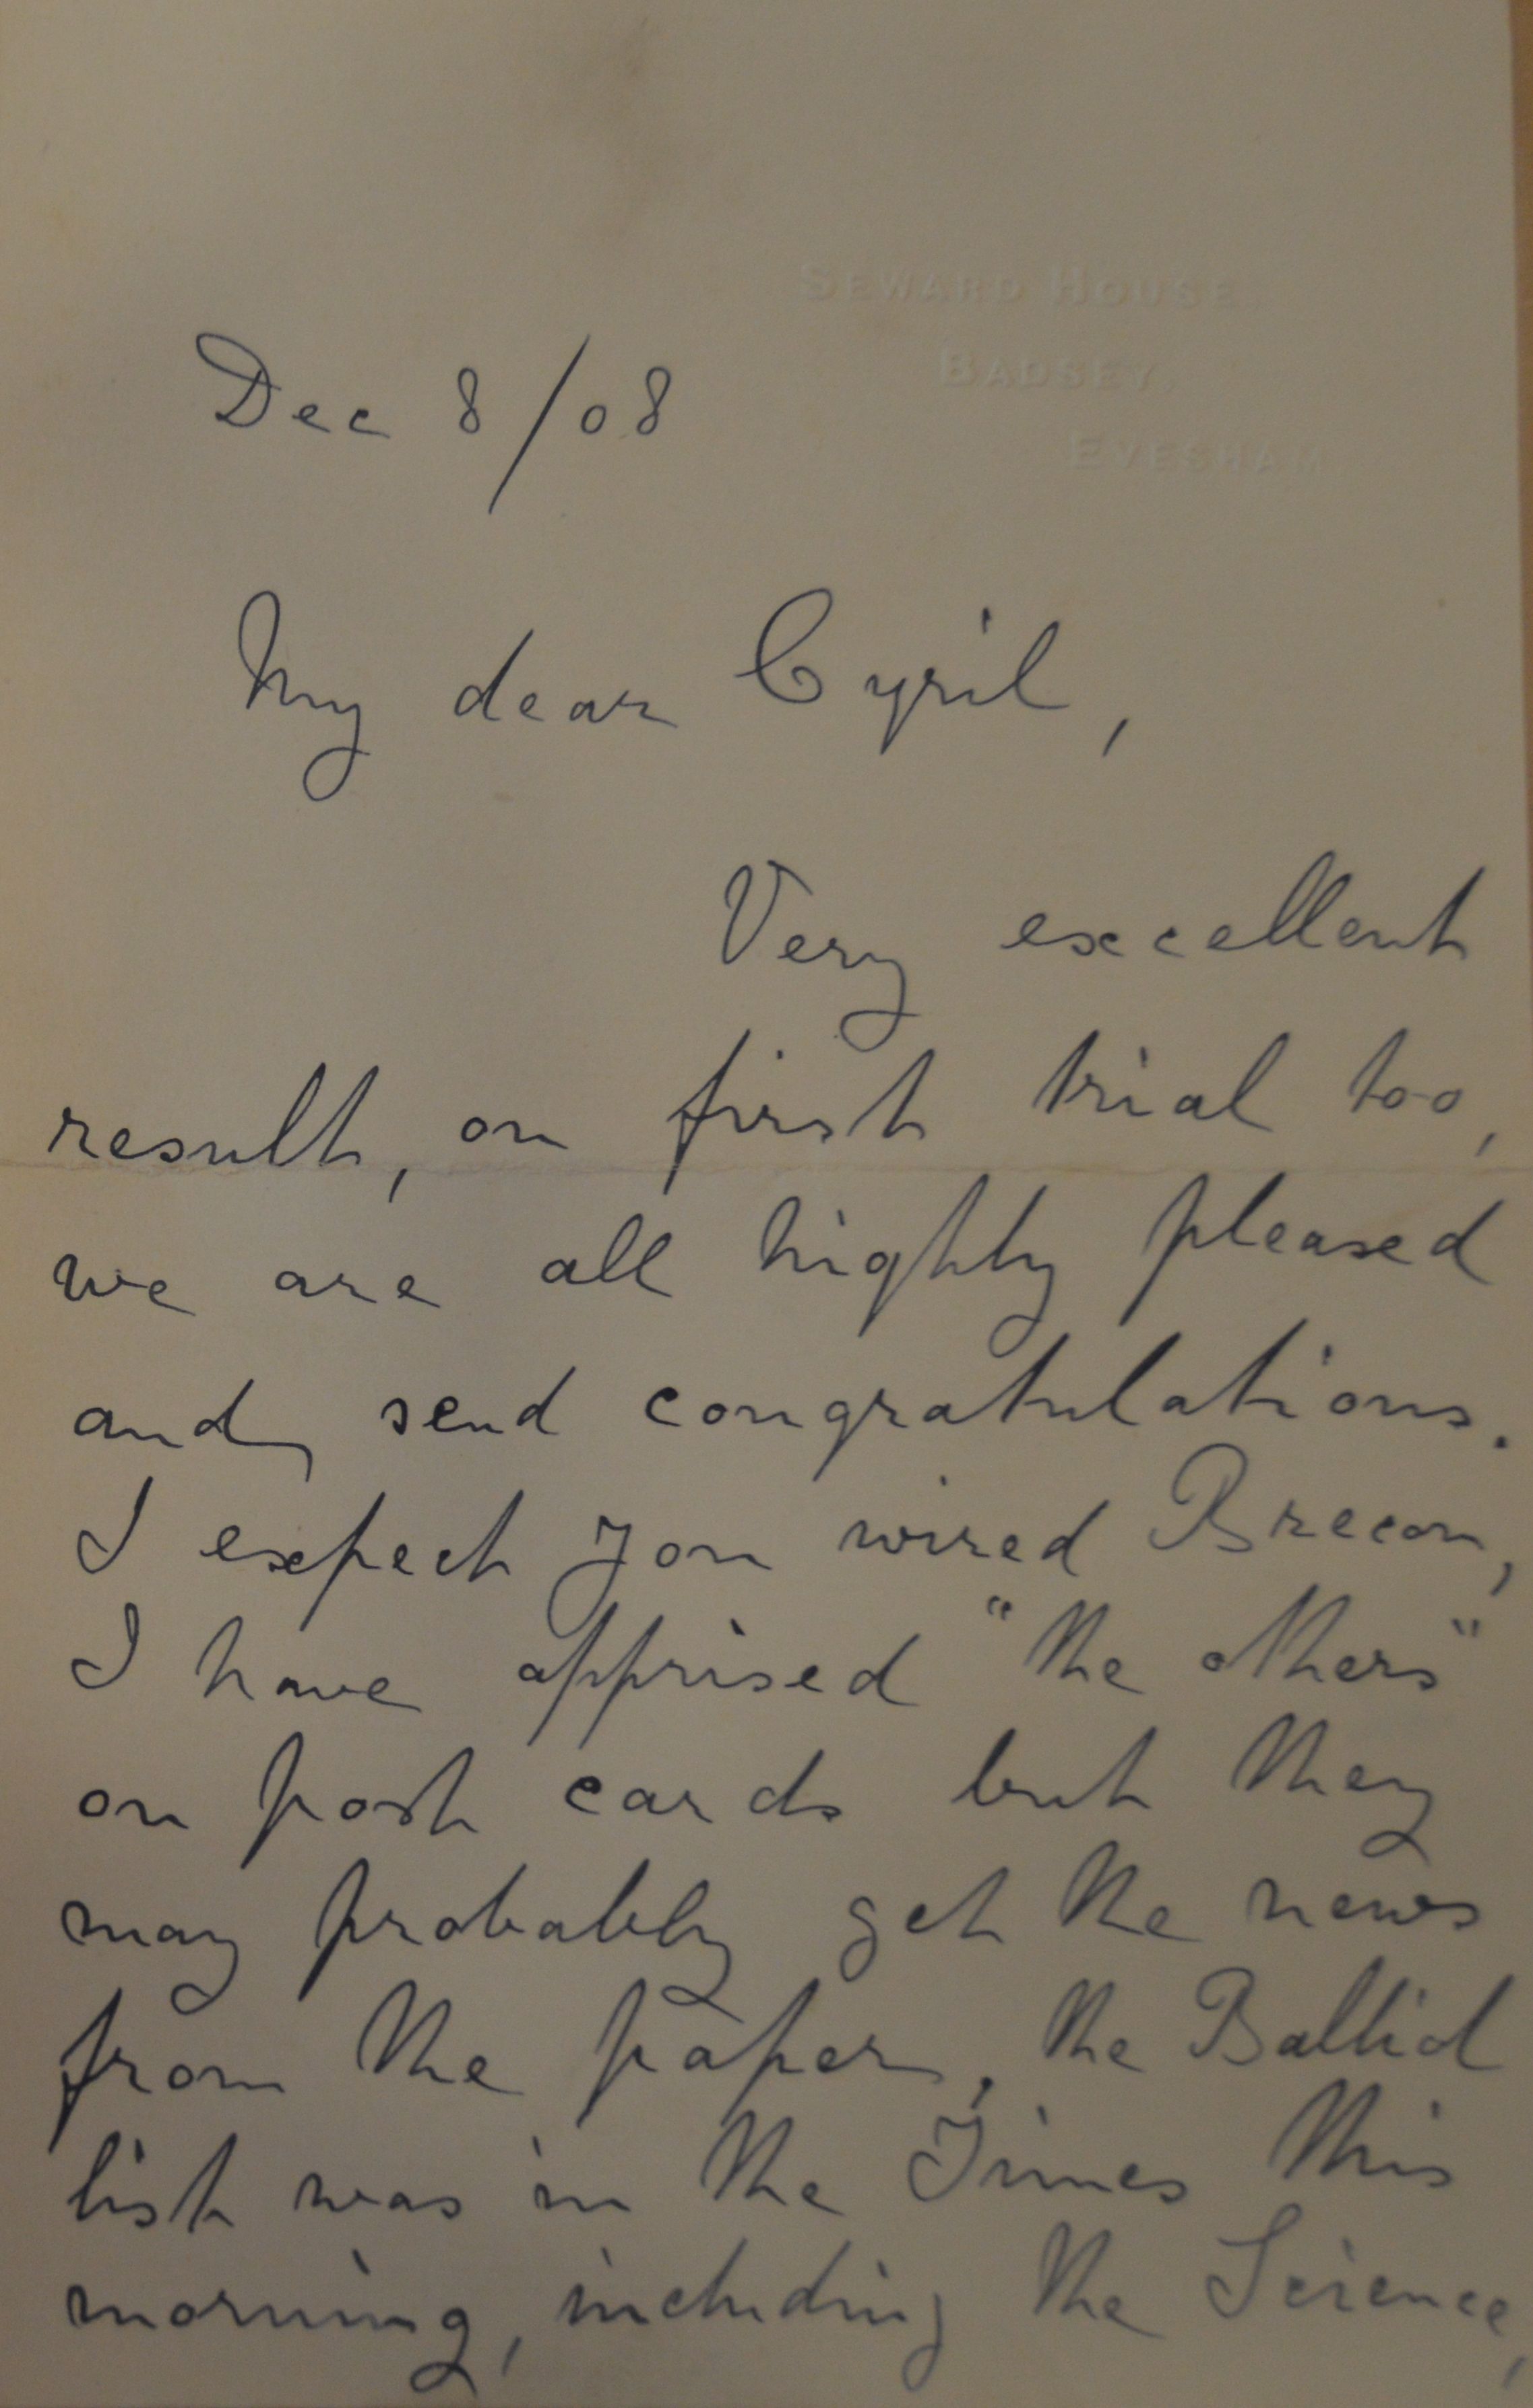 SEWARD HOUSE.
BADSEY,
EVESHAM.
Dec 8/08
My dear Cyril,
Very excellent
result, on first trial too,
we are all highly pleased
and, send congratulations.
I expect you wired Brecon,
I have apprised "the others"
on post cards but they
may probably get the news
from the paper, the Balliol
list was in the Times this
morning, including the Science,